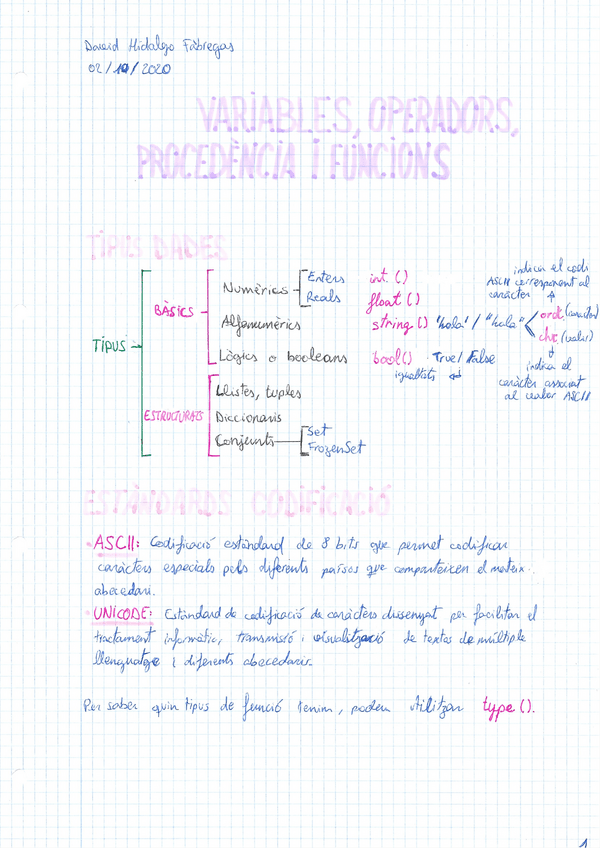 David Hidalgo Fàbregas
02/10/2020
VARIABLES, OPERADORS,
PROCEDÈNCIA I FUNCIONS
TIPUS DADES
TIPUS
BÀSICS
Numèrics
Enters int.()
Reals float()
Alfanumèrics string() 'hola' / "hola"
indica el codi
ASCII corresponent al
caràcter
ord(caràcter)
chr(valor)
indica el
caràcter associat
al valor ASCII
Lògics o booleans bool() True/False
igualtats
ESTRUCTURATS
Llistes, tuples
Diccionaris
Conjunts
Set
FrozenSet
ESTÀNDARDS CODIFICACIÓ
· ASCII: Codificació estàndard de 8 bits que permet codificar
caràcters especials pels diferents països que comparteixen el mateix
abecedari.
· UNICODE: Estàndard de codificació de caràcters dissenyat per facilitar el
tractament informàtic, transmissió i visualització de textos de múltiple
llenguatge i diferents abecedaris.
Per saber quin tipus de funció tenim, podem utilitzar type().
1